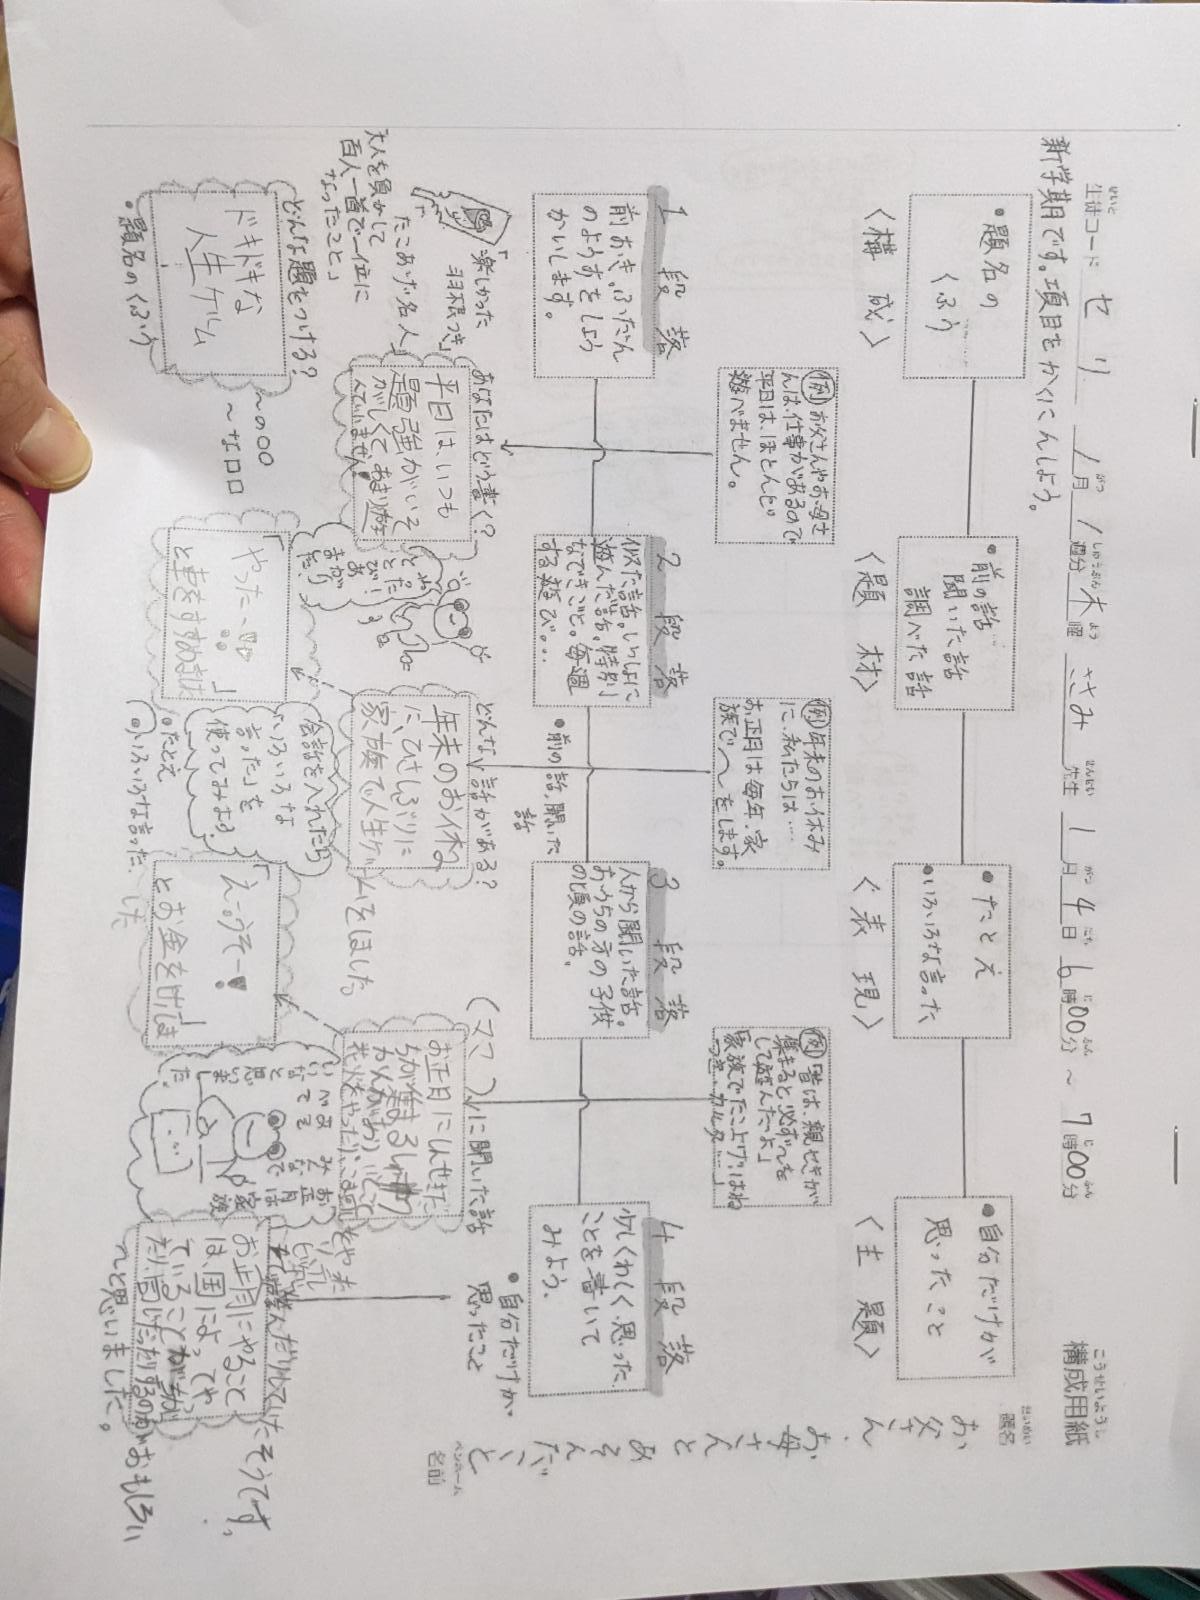 構成用紙
こうせいようし
生徒コード セリ 1月1週分 木曜 ささみ先生 1月4日 6時00分 ～ 7時00分
せいと がつ しゅうぶん よう せんせい がつ にち じ ふん じ ふん
新学期です。項目をかくにんしよう。
題名
だいめい
お父さん、お母さんとあそんだこと
ペンネーム
名前
•題名の
くふう
〈構成〉
•前の話
聞いた話
調べた話
〈題材〉
•たとえ
•いろいろな言った
〈表現〉
•自分だけが
思ったこと
〈主題〉
(例)お父さんやお母さ
んは仕事があるので
平日は、ほとんど
遊べません。
(例)年末のお休み
に、私たちは…
お正月は毎年、家
族で〜をします。
(例)「昔は、親せきが
集まると必ず〜を
して遊んだよ」
家族でたこ上げ・はね
つき・カルタ…
1段落
前おき。ふだん
のようすをしょう
かいします。
2段落
似た話。いっしょに
遊んだ話。特別
なできごと。毎週
する遊び。…
•前の話、聞いた
話
3段落
人から聞いた話。
おうちの方の子供
の頃の話。
4段落
少しくわしく、思った
ことを書いて
みよう。
•自分だけが
思ったこと
「楽しかった
羽根つき」
「たこあげ名人」
「大人を負かして
百人一首で一位に
なったこと」
あなたはどう書く?
平日は、いつも
勉強がいそ
がしくて、あまり遊
んでいません。
どんな話がある?
年末のお休み
に、ひさしぶりに
家族で人生ゲー
ムをしました。
(ママ)に聞いた話
お正月にしんせきた
ちが集まる
花火をやったり、こま回しをや
遊んだりしていたそうです。
どんな題をつける?
ドキドキな
人生ゲーム
•題名のくふう
〜の〇〇
〜な口口
「やったー!!」
と車をすすめました
会話を入れたら
「いろいろな
言った」を
使ってみよう。
•たとえ
•いろいろな言った
「えーうそー!」
とお金をはらいま
した
お正月にやること
は、国によって
ていることが
〜と思いました。